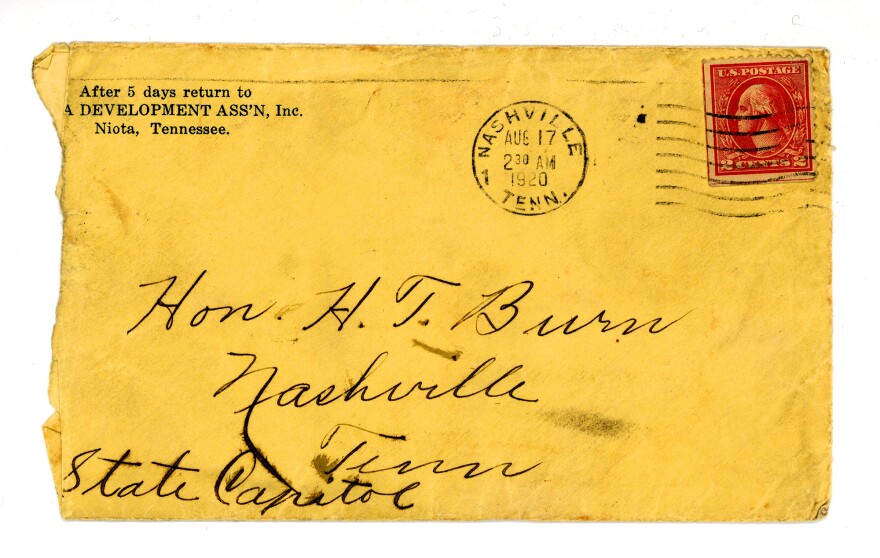 After 5 days return to
A DEVELOPMENT ASS'N, Inc.
Niota, Tennessee.
NASHVILLE
AUG 17
2 30 AM
1920
1
TENN.
U.S. POSTAGE
2 CENTS 2
Hon. H. T. Burn
Nashville
Tenn
State Capitol